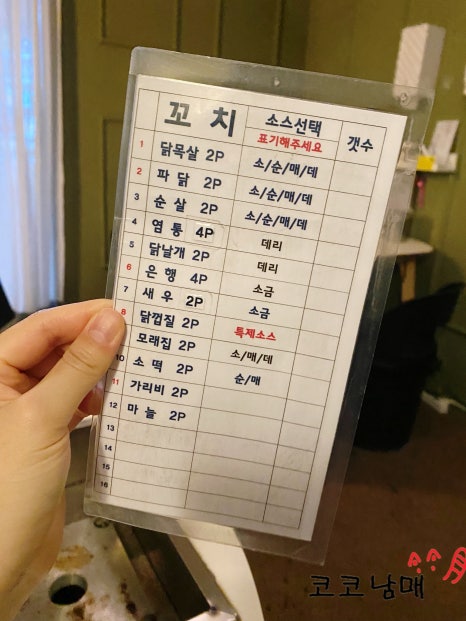 꼬 치 소스선택 갯수
표기해주세요
1 닭목살 2P 소/순/매/데
2 파 닭 2P 소/순/매/데
3 순 살 2P 소/순/매/데
4 염 통 4P 데리
5 닭날개 2P 데리
6 은 행 4P 소금
7 새 우 2P 소금
8 닭껍질 2P 특제소스
모래집 2P 소/매/데
10 소 떡 2P 순/매
11 가리비 2P
12 마 늘 2P
13
14
15
16
코코남매